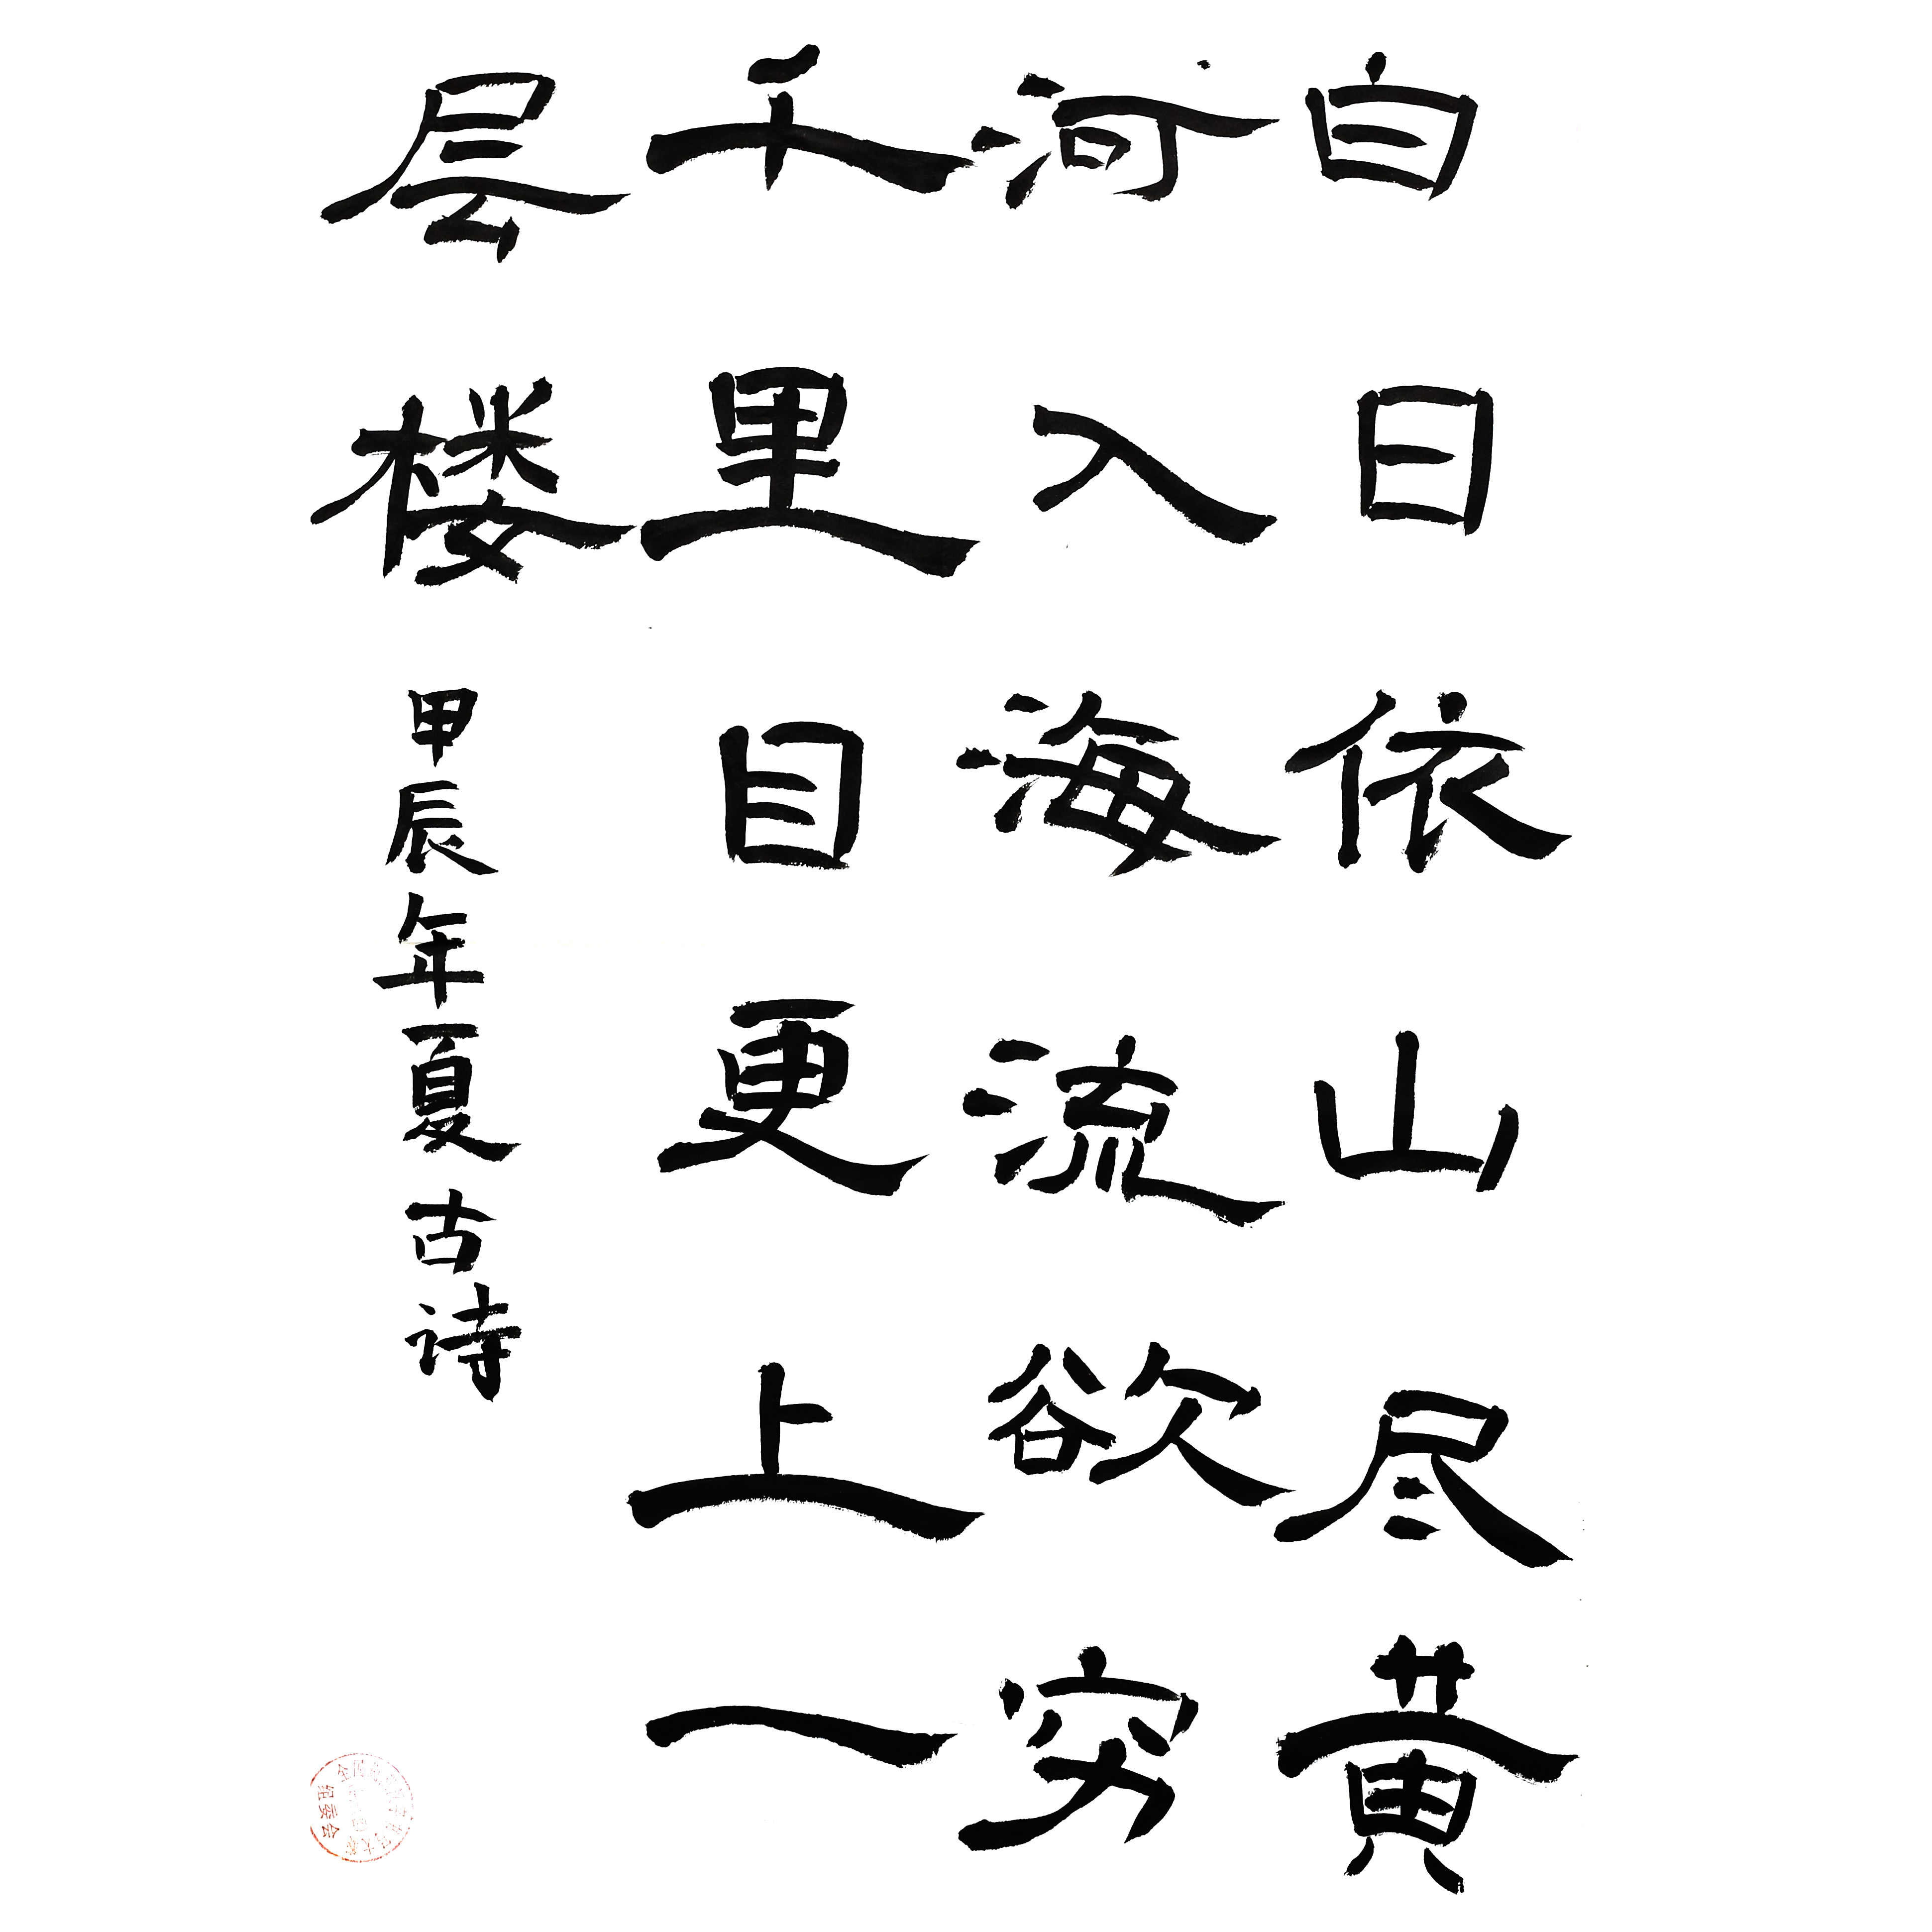 白日依山尽黄
河入海流欲穷
千里目更上一
层楼
甲辰年夏古诗
组委会